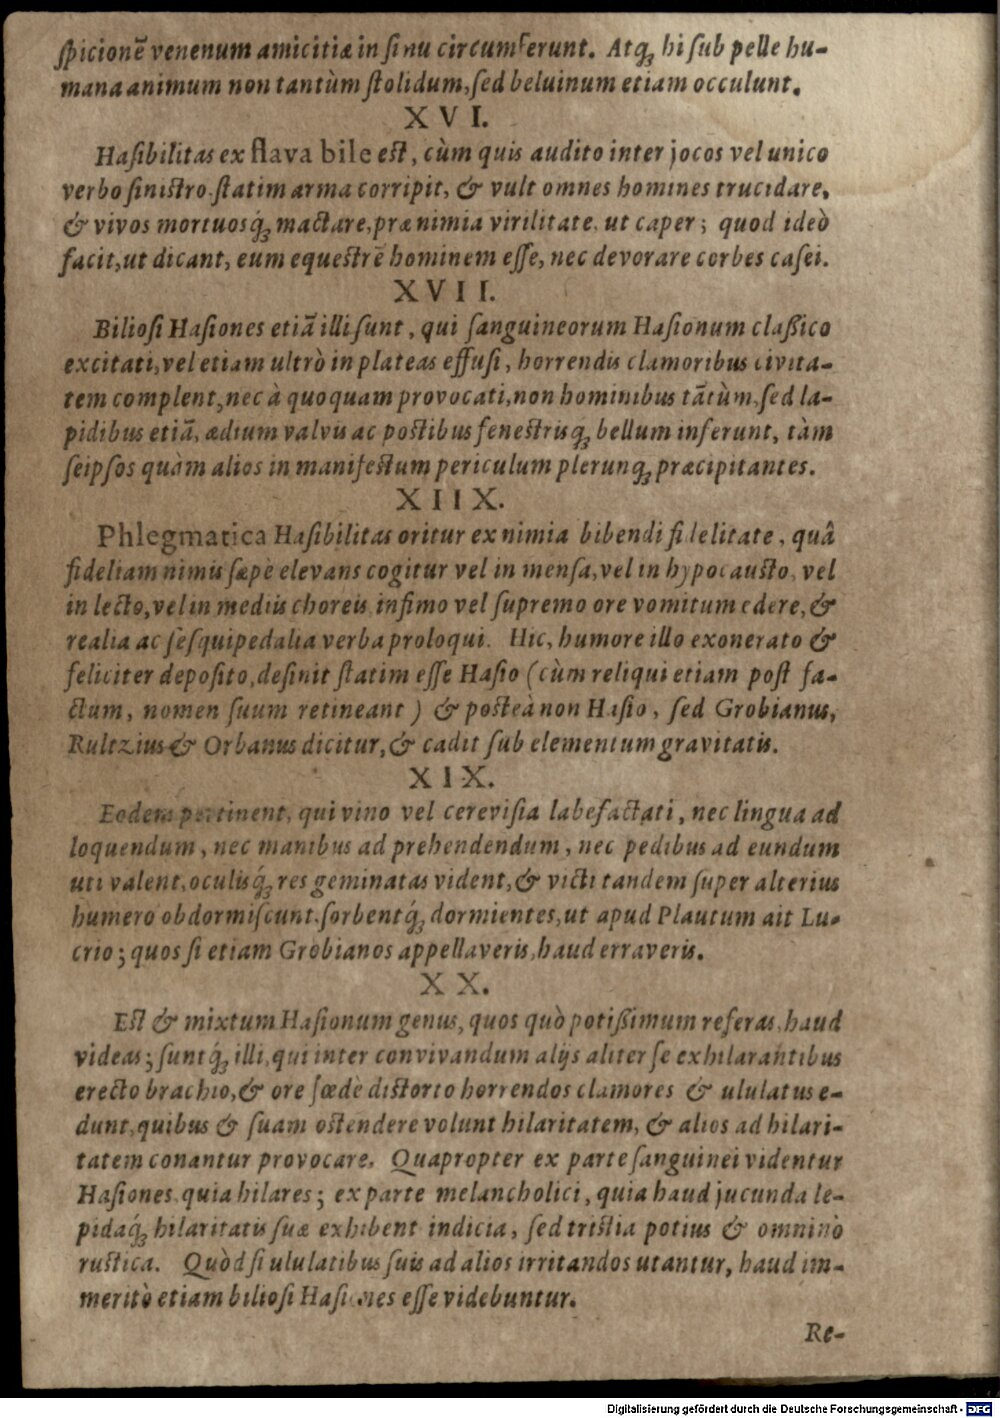 ſpicionē venenum amicitiæ in ſinu circumferunt. Atq́ꝫ hi ſub pelle hu-
mana animum non tantùm ſtolidum, ſed beluinum etiam occulunt.
XVI.
Haſibilitas ex flava bile eſt, cùm quis audito inter jocos vel unico
verbo ſiniſtro, ſtatim arma corripit, & vult omnes homines trucidare,
& vivos mortuosq́ꝫ mactare, præ nimia virilitate, ut caper; quod ideò
facit, ut dicant, eum equeſtrē hominem eſſe, nec devorare corbes caſei.
XVII.
Bilioſi Haſiones etiā illi ſunt, qui ſanguineorum Haſionum claßico
excitati, vel etiam ultrò in plateas effuſi, horrendis clamoribus civita-
tem complent, nec à quoquam provocati, non hominibus tātùm, ſed la-
pidibus etiā, ædium valvis ac poſtibus feneſtrisqꝫ bellum inferunt, tàm
ſeipſos quàm alios in manifeſtum periculum plerunqꝫ præcipitantes.
XIIX.
Phlegmatica Haſibilitas oritur ex nimia bibendi fidelitate, quâ
fideliam nimis ſæpè elevans cogitur vel in menſa, vel in hypocauſto, vel
in lecto, vel in mediis choreis infimo vel ſupremo ore vomitum edere, &
realia ac ſeſquipedalia verba proloqui. Hic, humore illo exonerato &
feliciter depoſito, deſinit ſtatim eſſe Haſio (cùm reliqui etiam poſt fa-
ctum, nomen ſuum retineant) & poſteà non Haſio, ſed Grobianus,
Rultzius & Orbanus dicitur, & cadit ſub elementum gravitatis.
XIX.
Eodem pertinent, qui vino vel cereviſia labefactati, nec lingua ad
loquendum, nec manibus ad prehendendum, nec pedibus ad eundum
uti valent, oculisq́ꝫ res geminatas vident, & victi tandem ſuper alterius
humero obdormiſcunt, ſorbentq́ꝫ dormientes, ut apud Plautum ait Lu-
crio; quos ſi etiam Grobianos appellaveris, haud erraveris.
XX.
Eſt & mixtum Haſionum genus, quos quò potißimum referas, haud
videas; ſuntq́ꝫ illi, qui inter convivandum alijs aliter ſe exhilarantibus
erecto brachio, & ore fœdè diſtorto horrendos clamores & ululatus e-
dunt, quibus & ſuam oſtendere volunt hilaritatem, & alios ad hilari-
tatem conantur provocare. Quapropter ex parte ſanguinei videntur
Haſiones, quia hilares; ex parte melancholici, quia haud jucunda le-
pidaq́ꝫ hilaritatis ſuæ exhibent indicia, ſed triſtia potius & omninò
ruſtica. Quòd ſi ululatibus ſuis ad alios irritandos utantur, haud im-
meritò etiam bilioſi Haſiones eſſe videbuntur.
Re-
Digitalisierung gefördert durch die Deutsche Forschungsgemeinschaft - DFG